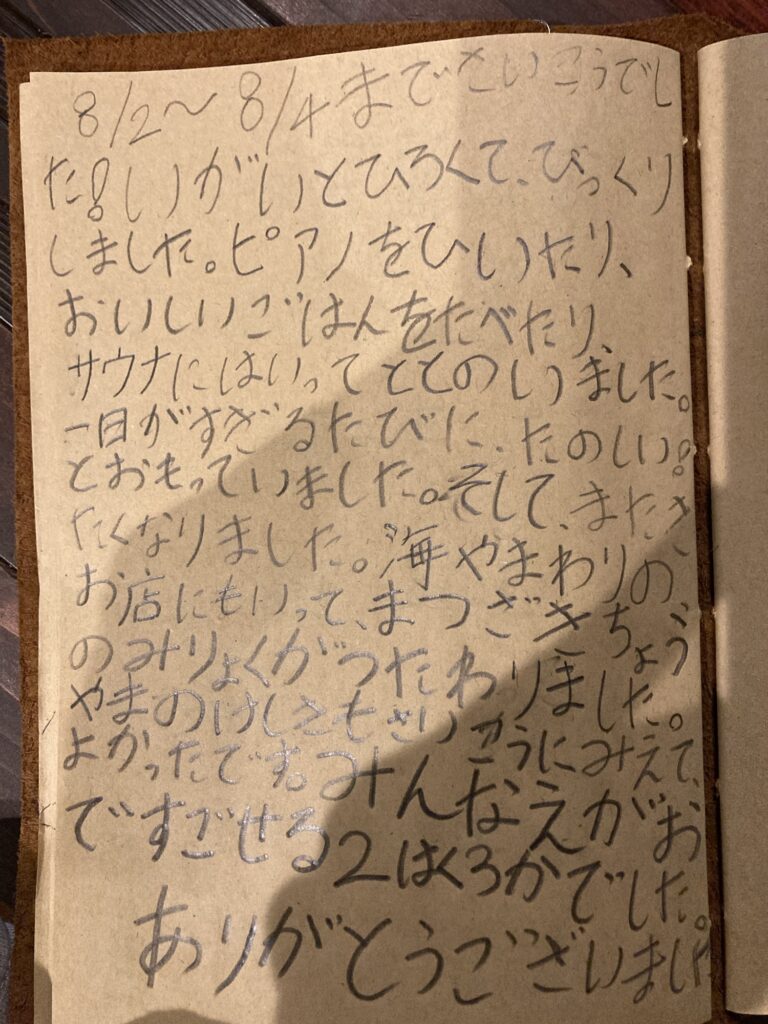 8/2〜8/4までさいこうでし
た!いがいとひろくて、びっくり
しました。ピアノをひいたり、
おいしいごはんをたべたり、
サウナにはいってととのいました。
一日がすぎるたびに、たのしい!
とおもっていました。そして、またき
たくなりました。海やまわりの
お店にもいって、まつざきちょう
のみりょくがつたわりました。
やまのけしきもさいこうにみえて、
よかったです。みんなえがお
ですごせる2はく3かでした。
ありがとうございました